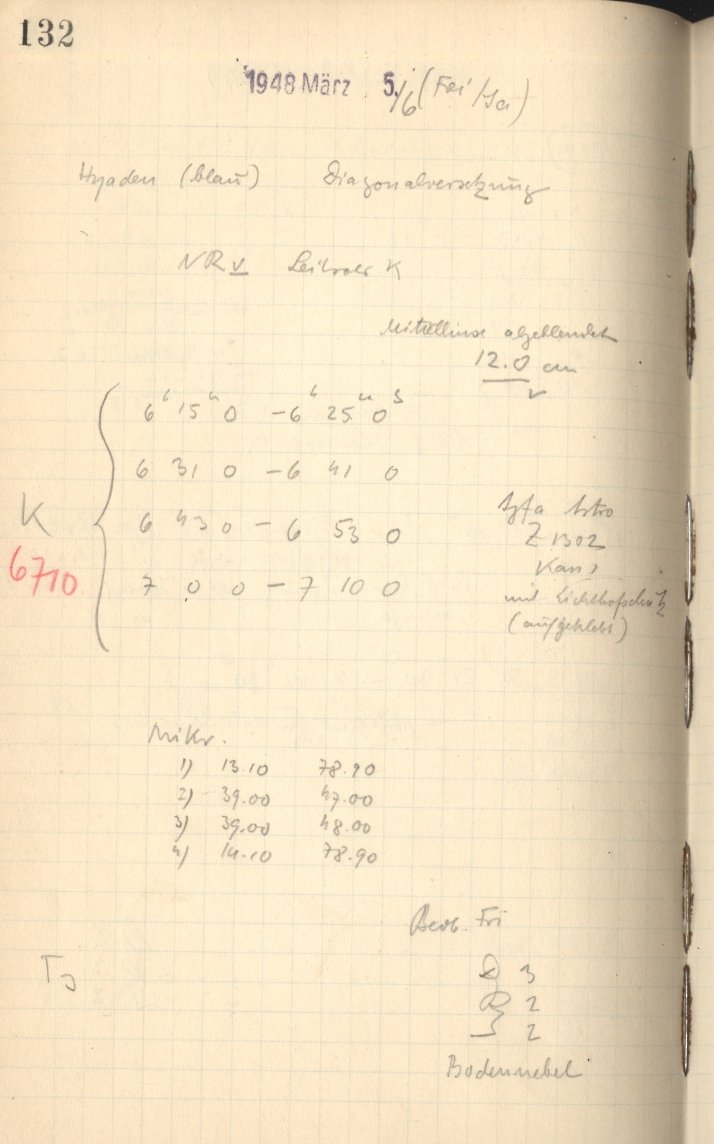 132
1948 März 5./6 (Frei/Sa)
Hyaden (blau) Diagonalversetzung
NR v K
Mittellinse abgeblendet
12.0 cm
v
6h 15m 0 - 6h 25m 0s
6 31 0 - 6 41 0
6 43 0 - 6 53 0
7 0 0 - 7 10 0
K
6710
Agfa Astro
Z 1302
mit Lichthofschutz
(aufgeklebt)
Mikr.
1) 13.10 78.90
2) 39.00 47.00
3) 39.00 48.00
4) 14.10 78.90
Beob. Fri
3
R 2
2
Bodennebel